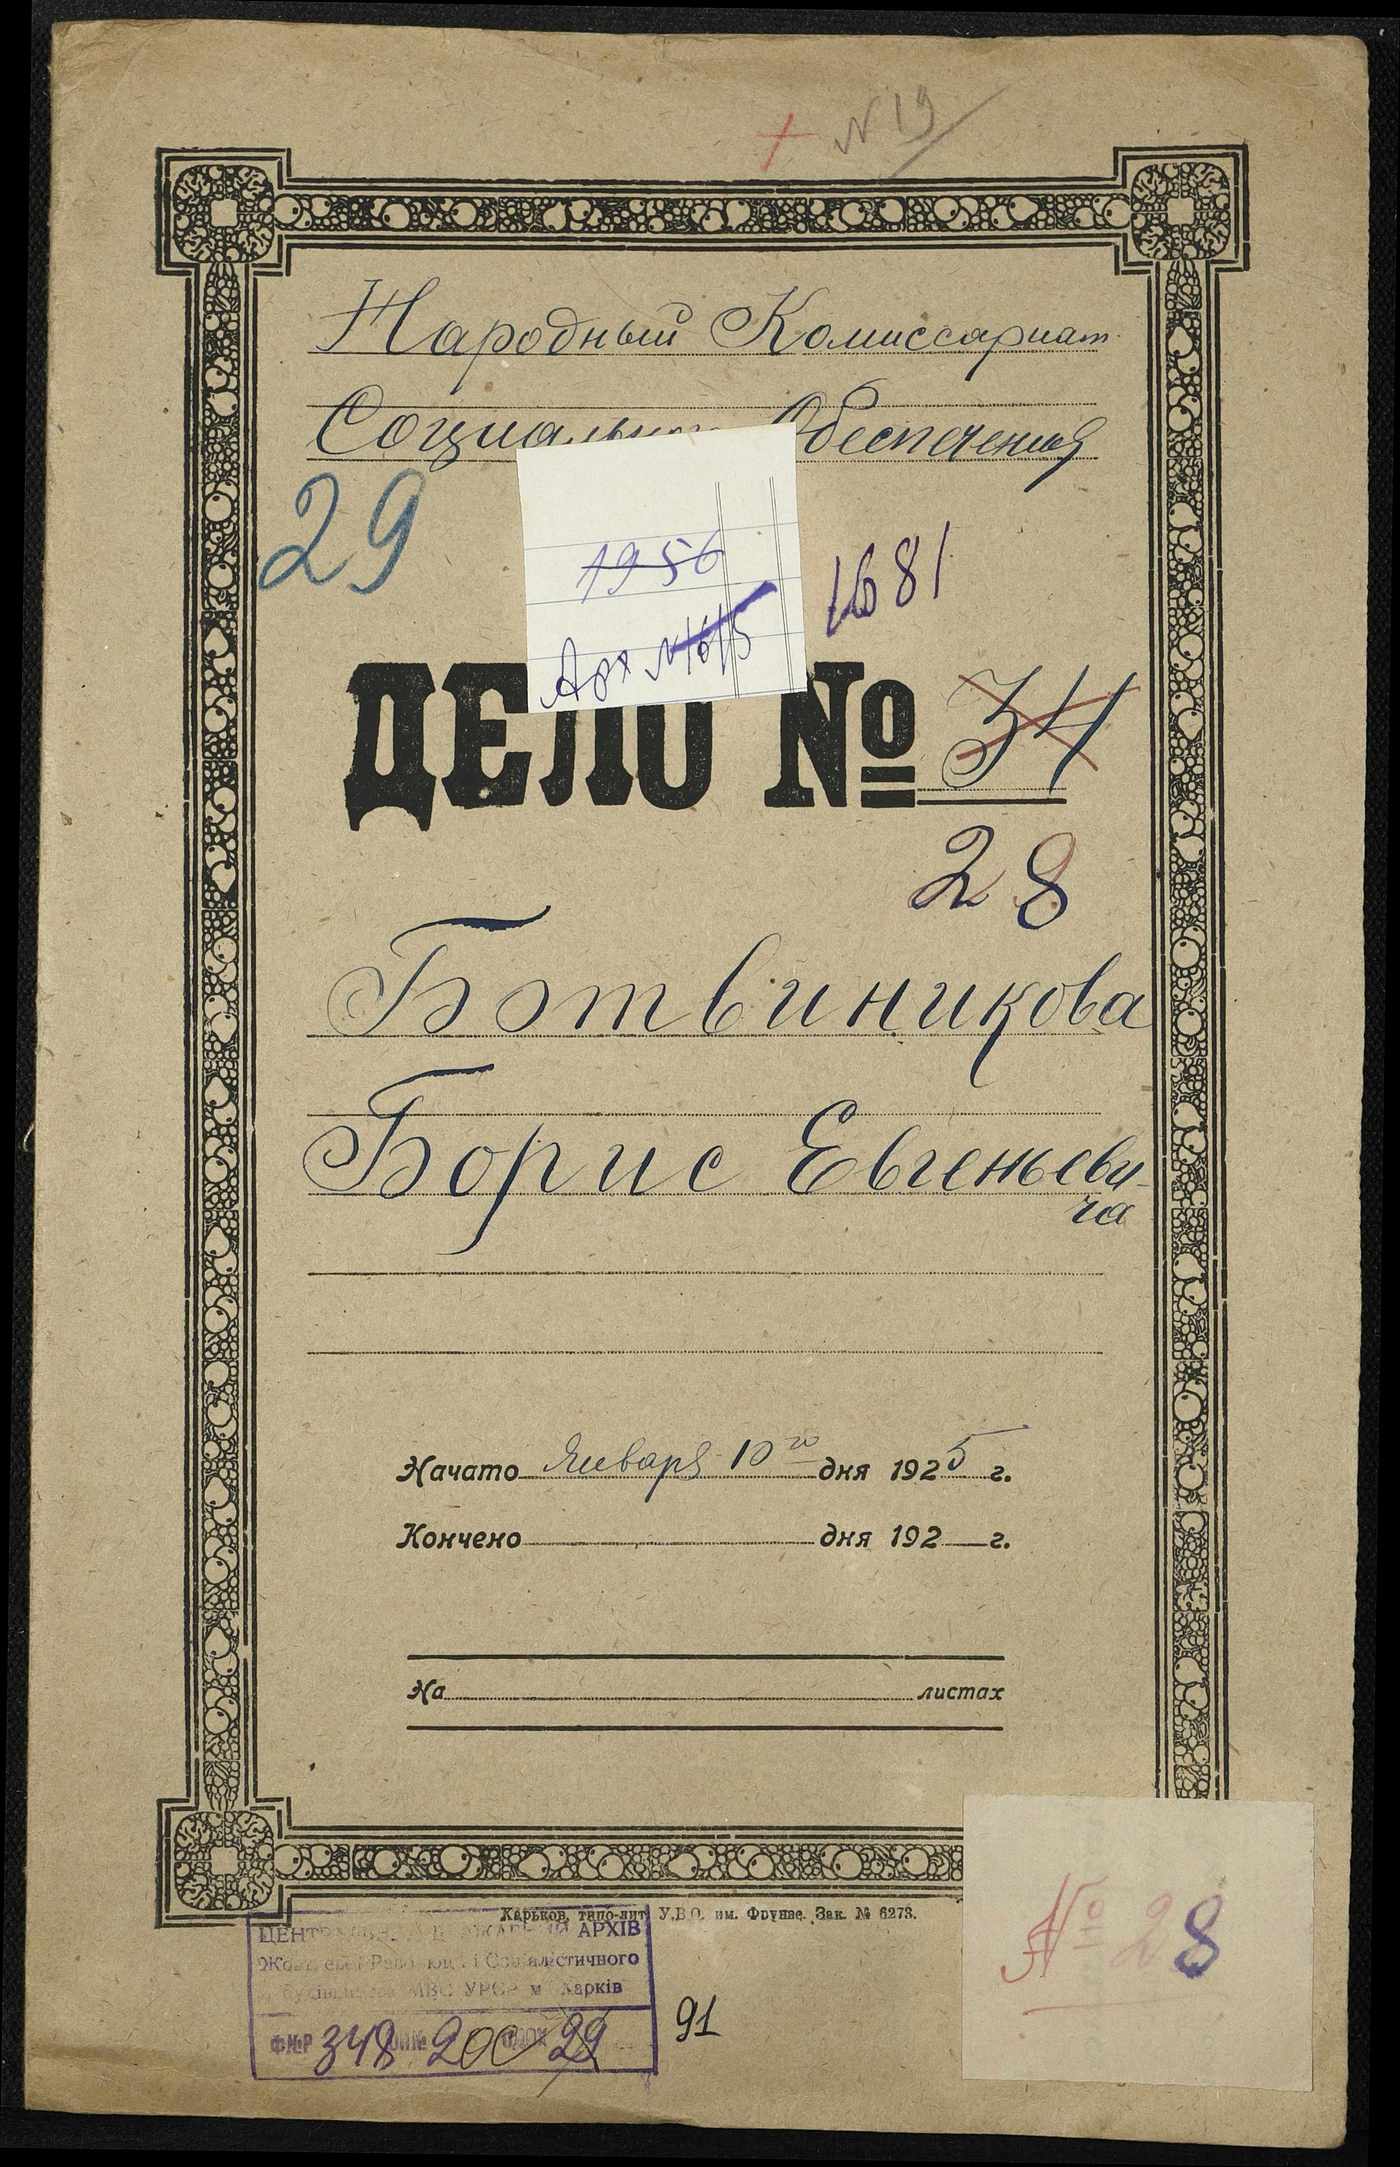 N 19
Народный Комиссариат
Социального Обеспечения
29
1956
Арх №1615
1681
ДЕЛО № 34
28
Ботвиникова
Борис Евгеньеви-
ча
Начато Января 10го дня 1925 г.
Кончено дня 192 г.
На листах
Харьков, типо-лит. У.В.О. им. Фрунзе. Зак. № 6273.
ЦЕНТРАЛЬНИЙ ДЕРЖАВНИЙ АРХІВ
Жовтневої Революції і Соціалістичного
будівництва МВС УРСР м. Харків
Ф№Р 348 ОП№ 20С 29
91
№ 28